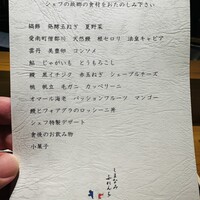 シェフの故郷の食材をおたのしみ下さい
鍋飾 発酵玉ねぎ 夏野菜
愛南町僧都川 天然鰻 根セロリ 法皇キャビア
雲丹 美豊卵 コンソメ
鮎 じゃがいも とうもろこし
鱧 黒イチジク 赤玉ねぎ シェーブルチーズ
桃 帆立 毛ガニ カッペリーニ
オマール海老 パッションフルーツ マンゴー
鱧とフォアグラのロッシーニ
シェフ特製デザート
食後のお飲み物
小菓子
しまなみ
ふれんち